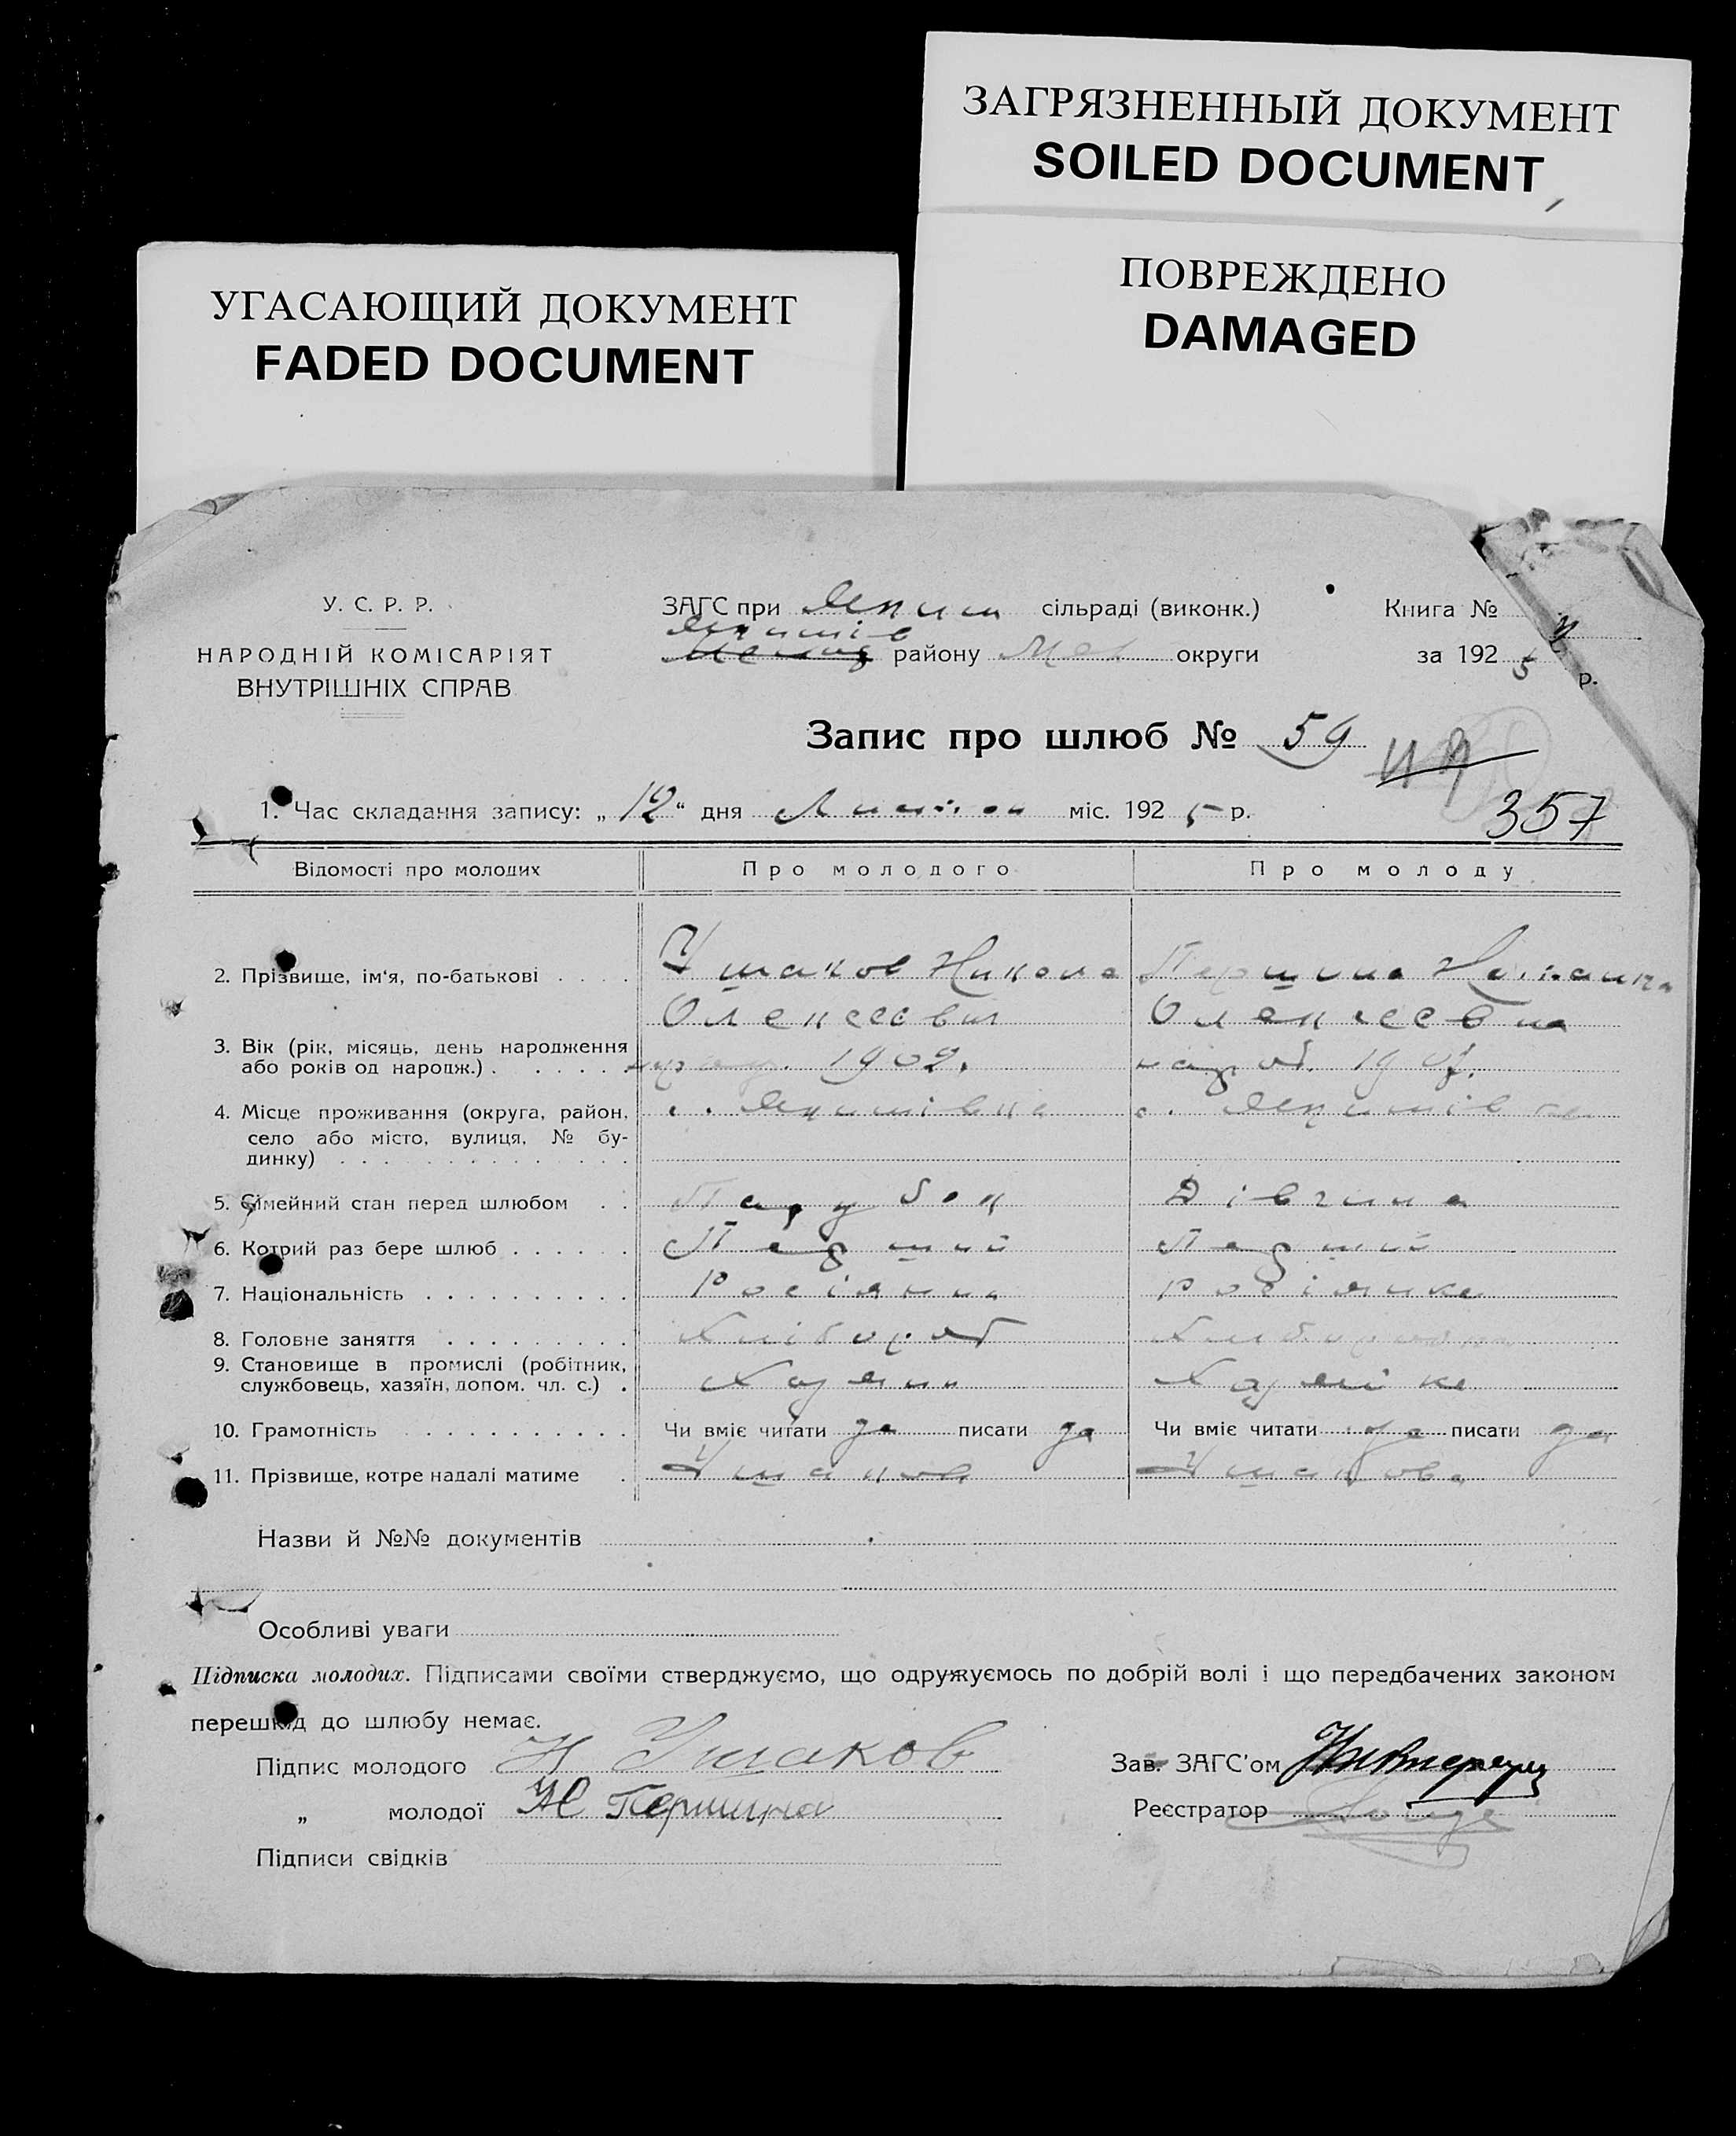 ЗАГРЯЗНЕННЫЙ ДОКУМЕНТ
SOILED DOCUMENT
ПОВРЕЖДЕНО
DAMAGED
УГАСАЮЩИЙ ДОКУМЕНТ
FADED DOCUMENT
У. С. Р. Р.
НАРОДНІЙ КОМІСАРІЯТ
ВНУТРІШНІХ СПРАВ
ЗАГС при сільраді (виконк.)
району Мел округи
Книга №
за 1925 р.
Запис про шлюб № 59
357
1. Час складання запису: „12“ дня міс. 1925 р.
Відомості про молодих Про молодого Про молоду
2. Прізвище, ім'я, по-батькові . . . . Ушаков Никола Першина
Олексеевич Олексеевна
3. Вік (рік, місяць, день народження
або років од народж.) . . . . . . 1902. 1907.
4. Місце проживання (округа, район, с. Якимівка с. Якимівка
село або місто, вулиця, № бу-
динку) . . . . . . . . . . . . . .
5. Сімейний стан перед шлюбом . . Парубок Дівчина
6. Котрий раз бере шлюб . . . . . . Перший Перший
7. Національність . . . . . . . . . . Росіянин Росіянка
8. Головне заняття . . . . . . . . . Хлібороб
9. Становище в промислі (робітник,
службовець, хазяїн, допом. чл. с.) . Хазяин Хазяйка
10. Грамотність . . . . . . . . . . . Чи вміє читати да писати да Чи вміє читати да писати да
11. Прізвище, котре надалі матиме . Ушаков Ушакова
Назви й №№ документів
Особливі уваги
Підписка молодих. Підписами своїми стверджуємо, що одружуємось по добрій волі і що передбачених законом
перешкод до шлюбу немає.
Підпис молодого Н Ушаков
„ молодої Н Першина
Підписи свідків
Зав. ЗАГС'ом
Реєстратор